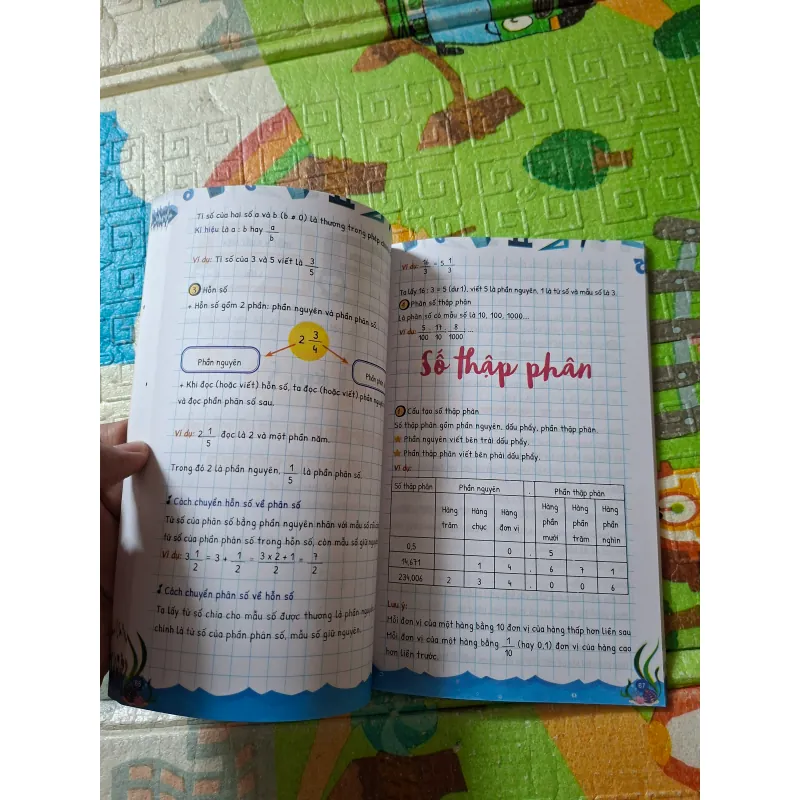 Tỉ số của hai số a và b (b ≠ 0) là thương trong phép
Kí hiệu là a : b hay a/b
Ví dụ: Tỉ số của 3 và 5 viết là 3/5
3 Hỗn số
+ Hỗn số gồm 2 phần: phần nguyên và phần phân số.
2 3/4
Phần nguyên
Phần
+ Khi đọc (hoặc viết) hỗn số, ta đọc (hoặc viết) phần
và đọc phần phân số sau.
Ví dụ: 2 1/5 đọc là 2 và một phần năm.
Trong đó 2 là phần nguyên, 1/5 là phần phân số.
Cách chuyển hỗn số về phân số
Tử số của phân số bằng phần nguyên nhân với mẫu số
tử số của phần phân số trong hỗn số, còn mẫu số giữ
Ví dụ: 3 1/2 = 3 + 1/2 = 3 x 2 + 1/2 = 7/2
Cách chuyển phân số về hỗn số
Ta lấy tử số chia cho mẫu số được thương là phần
chính là tử số của phần phân số, mẫu số giữ nguyên.
Ví dụ: 16/3 = 5 1/3
Ta lấy 16 : 3 = 5 (dư 1), viết 5 là phần nguyên, 1 là tử số và mẫu số là 3.
4 Phân số thập phân
Là phân số có mẫu số là 10, 100, 1000...
Ví dụ: 5/100, 17/10, 8/1000 ...
Số thập phân
1 Cấu tạo số thập phân
Số thập phân gồm phần nguyên, dấu phẩy, phần thập phân.
Phần nguyên viết bên trái dấu phẩy.
Phần thập phân viết bên phải dấu phẩy.
Ví dụ:
Số thập phân Phần nguyên , Phần thập phân
Hàng trăm Hàng chục Hàng đơn vị Hàng phần mười Hàng phần trăm Hàng phần nghìn
0,5 0 , 5
14,671 1 4 , 6 7 1
234,006 2 3 4 , 0 0 6
Lưu ý:
Mỗi đơn vị của một hàng bằng 10 đơn vị của hàng thấp hơn liền sau
Mỗi đơn vị của một hàng bằng 1/10 (hay 0,1) đơn vị của hàng cao
hơn liền trước.